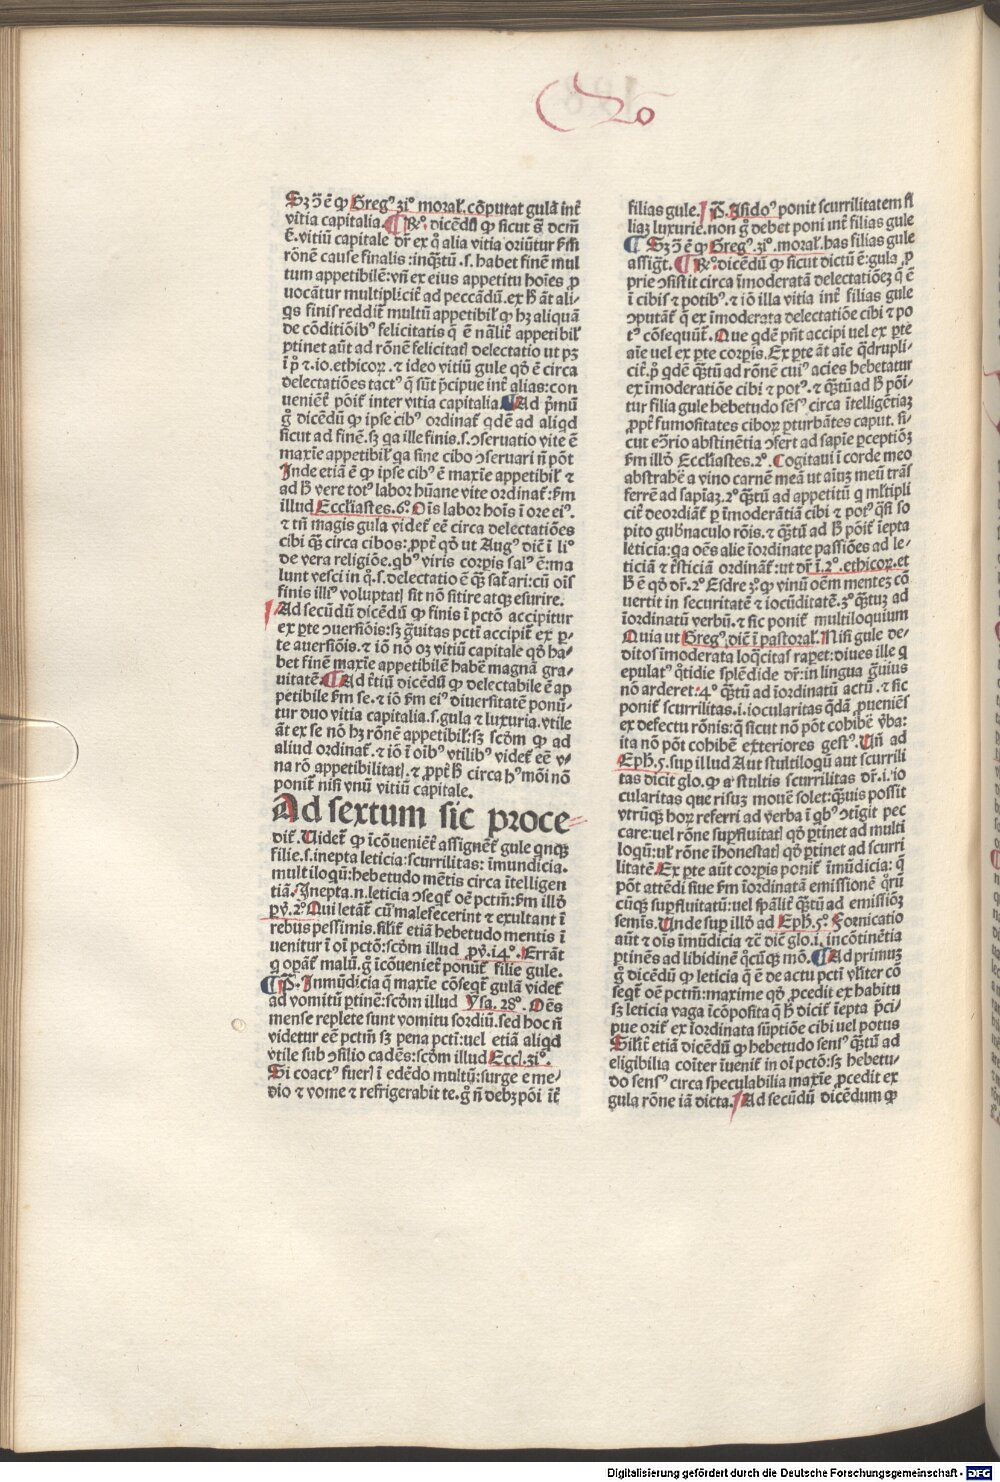 Qo
Sʒ ↄ̄ ē ꝙ Gregꝰ 31º moraƚ. cōputat gulā int̄
vitia capitalia. ¶ Rº. dicēdū ꝙ sicut s̄ dcm̄
ē. vitiū capitale dr̄ ex q̊ alia vitia oriūtur ẜm
rōnē cause finalis: inqꝫtū .s. habet finē mul
tum appetibilē: vn̄ ex eius appetitu hoīes ꝓ
uocātur multiplicit̄ ad peccādū. ex ꝫ āt ali-
qs finis reddit̄ multū appetibiƚ ꝙ hʒ aliquā
de cōditiōibꝰ felicitatis q̄ ē nālit̄ appetibiƚ
ꝑtinet aūt ad rōnē felicitatꝭ delectatio ut pʒ
ī p̄ ⁊ .10. ethicoꝝ. ⁊ ideo vitiū gule qd̄ ē circa
delectatiōes tactꝰ q̄ sūt p̄cipue int̄ alias: con
uenient̄ pōit̄ inter vitia capitalia. ¶ Ad p̄mū
g̊ dicēdū ꝙ ipse cibꝰ ordinat̄ qdē ad aliqd
sicut ad finē. sʒ qa ille finis .s. ↄseruatio vite ē
maxīe appetibiƚ qa sine cibo ↄseruari n̄ pōt
Inde etiā ē ꝙ ipse cibꝰ ē maxīe appetibiƚ ⁊
ad ꝫ vere totꝰ labor hūane vite ordinat̄: ẜm
illud Eccliastes. 6º. Oīs labor hoīs ī ore eiꝰ.
⁊ tn̄ magis gula videt̄ eē circa delectatiōes
cibi qꝫ circa cibos: ꝓpt̄ qd̄ ut Augꝰ dic̄ ī liº
de vera religiōe. qbꝰ viris corpis salꝰ ē: ma
lunt vesci in q̊ .s. delectatio ē qꝫ sat̄ari: cū oīs
finis illiꝰ voluptatꝭ sit nō sitire atqꝫ esurire.
Ad secūdū dicēdū ꝙ finis ī pctō accipitur
ex ꝑte ↄuersiōis: sʒ g̊uitas pcti accipit̄ ex ꝑ-
te auersiōis. ⁊ iō nō oʒ vitiū capitale qd̄ ha-
bet finē maxīe appetibilē habē magnā gra-
uitatē. ¶ Ad t̄tiū dicēdū ꝙ delectabile ē ap
petibile ẜm se. ⁊ iō ẜm eiꝰ diuersitatē ponū-
tur duo vitia capitalia .s. gula ⁊ luxuria. vtile
āt ex se nō hʒ rōnē appetibiƚ: sʒ scd̄m ꝙ ad
aliud ordinat̄. ⁊ iō ī oībꝰ vtilibꝰ videt̄ eē v-
na rō appetibilitatꝭ. ⁊ ꝓpt̄ ꝫ circa hꝰmōi nō
ponit̄ nisi vnū vitiū capitale.
Ad sextum sic proce-
dit̄. Videt̄ ꝙ īcōueniēt̄ assignēt̄ gule qnqꝫ
filie .s. inepta leticia: scurrilitas: īmundicia.
multiloqū: hebetudo mētis circa ītelligen
tiā. Inepta .n. leticia ↄseqt̄ oē pctm̄: ẜm illd̄
ꝓꝟ. 2º. Qui letāt̄ cū malefecerint ⁊ exultant ī
rebus pessimis. silit̄ etiā hebetudo mentis ī
uenitur ī oī pctō: scd̄m illud ꝓꝟ. 14º. Errāt
q opāt̄ malū. g̊ īcōuenient̄ ponūt̄ filie gule.
¶ P̄. Inmūdicia q̄ maxīe cōseqt̄ gulā videt̄
ad vomitū ꝑtinē: scd̄m illud Ysa. 28º. Oēs
mense replete sunt vomitu sordiū. sed hoc n̄
videtur eē pctm̄ sʒ pena pcti: uel etiā aliqd
vtile sub ↄsilio cadēs: scd̄m illud Eccl. 31º.
Si coactꝰ fuerꝭ ī edēdo multū: surge e me-
dio ⁊ vome ⁊ refrigerabit te. g̊ n̄ debʒ pōi it̄
filias gule. P̄. Isidoꝰ ponit scurrilitatem fi
liaʒ luxurie. non g̊ debet poni int̄ filias gule
¶ Sʒ ↄ̄ ē ꝙ Gregꝰ. 31º. moraƚ. has filias gule
assigt̄. ¶ Rº. dicēdū ꝙ sicut dictū ē: gula ꝓ
prie ↄsistit circa īmoderatā delectatiōeʒ q̄ ē
ī cibis ⁊ potibꝰ. ⁊ iō illa vitia int̄ filias gule
ↄputāt̄ q̄ ex īmoderata delectatiōe cibi ⁊ po
tꝰ cōsequūt̄. Que qdē pn̄t accipi uel ex ꝑte
aīe uel ex ꝑte corpis. Ex ꝑte āt aīe q̄drupli-
cit̄. p̄ qdē qꝫtū ad rōnē cuiꝰ acies hebetatur
ex īmoderatiōe cibi ⁊ potꝰ. ⁊ qꝫtū ad ꝫ pōi-
tur filia gule hebetudo sēsꝰ circa ītelligētiaʒ
ꝓpt̄ fumositates ciboꝝ ꝑturbātes caput. si-
cut eↄ̄rio abstinētia ↄfert ad sapīe ꝑceptiōʒ
ẜm illd̄ Eccliastes. 2º. Cogitaui ī corde meo
abstrahē a vino carnē meā ut aīuʒ meū trāſ
ferrē ad sapīaʒ. 2º qꝫtū ad appetitū q mƚtipli
cit̄ deordiāt̄ ꝑ īmoderātiā cibi ⁊ potꝰ qsi so
pito gub̄naculo rōis. ⁊ qꝫtū ad ꝫ pōit̄ īepta
leticia: qa oēs alie īordinate passiōes ad le-
ticiā ⁊ t̄sticiā ordinat̄: ut dr̄ ī. 2º. ethicoꝝ. et
ꝫ ē qd̄ dr̄. 2º Esdre 3º. ꝙ vinū oēm menteʒ cō
uertit in securitatē ⁊ iocūditatē. 3º qꝫtuʒ ad
īordinatū verbū. ⁊ sic ponit̄ multiloquium
Quia ut Gregꝰ. dic̄ ī pastoraƚ. Nisi gule de-
ditos īmoderata loq̄citas rapet: diues ille q
epulatꝰ q̊tidie splēdide dr̄: in lingua g̊uius
nō arderet: 4º qꝫtū ad īordinatū actū. ⁊ sic
ponit̄ scurrilitas .i. iocularitas qdā ꝓueniēs
ex defectu rōnis: q̄ sicut nō pōt cohibē v̄ba:
ita nō pōt cohibē exteriores gestꝰ. Vn̄ ad
Eph. 5. sup illud Aut stultiloqū aut scurrili
tas dicit glo. ꝙ a stultis scurrilitas dr̄ .i. io
cularitas que risuʒ mouē solet: qꝫuis possit
vtrūqꝫ hoꝝ referri ad v̄erba ī qbꝰ ↄtīgit pec
care: uel rōne suꝑfluitatꝭ qd̄ ꝑtinet ad multi
loqū: uƚ rōne īhonestatꝭ qd̄ ꝑtinet ad scurri
litatē. Ex ꝑte aūt corpis ponit̄ īmūdicia: q̄
pōt attēdi siue ẜm īordinatā emissionē q̊rū
cūqꝫ suꝑfluitatū: uel sp̄alit̄ qꝫtū ad emissiōʒ
semīs. Unde sup illd̄ ad Eph. 5º. Fornicatio
aūt ⁊ oīs īmūdicia ⁊c̄ dic̄ glo .i. incōtinētia
ꝑtinēs ad libidinē q̊cūqꝫ mō. ¶ Ad primuʒ
g̊ dicēdū ꝙ leticia q̄ ē de actu pcti vƚiter cō
seqt̄ oē pctm̄: maxime qd̄ ꝓcedit ex habitu
sʒ leticia vaga īcōposita q̄ ꝫ dicit̄ īepta p̄ci-
pue orit̄ ex īordinata sūptiōe cibi uel potus
Silit̄ etiā dicēdū ꝙ hebetudo sensꝰ qꝫtū ad
eligibilia coīter īuenit̄ in oī pctō: sʒ hebetu-
do sensꝰ circa speculabilia maxīe ꝓcedit ex
gula rōne iā dicta. Ad secūdū dicēdum ꝙ
Digitalisierung gefördert durch die Deutsche Forschungsgemeinschaft - DFG